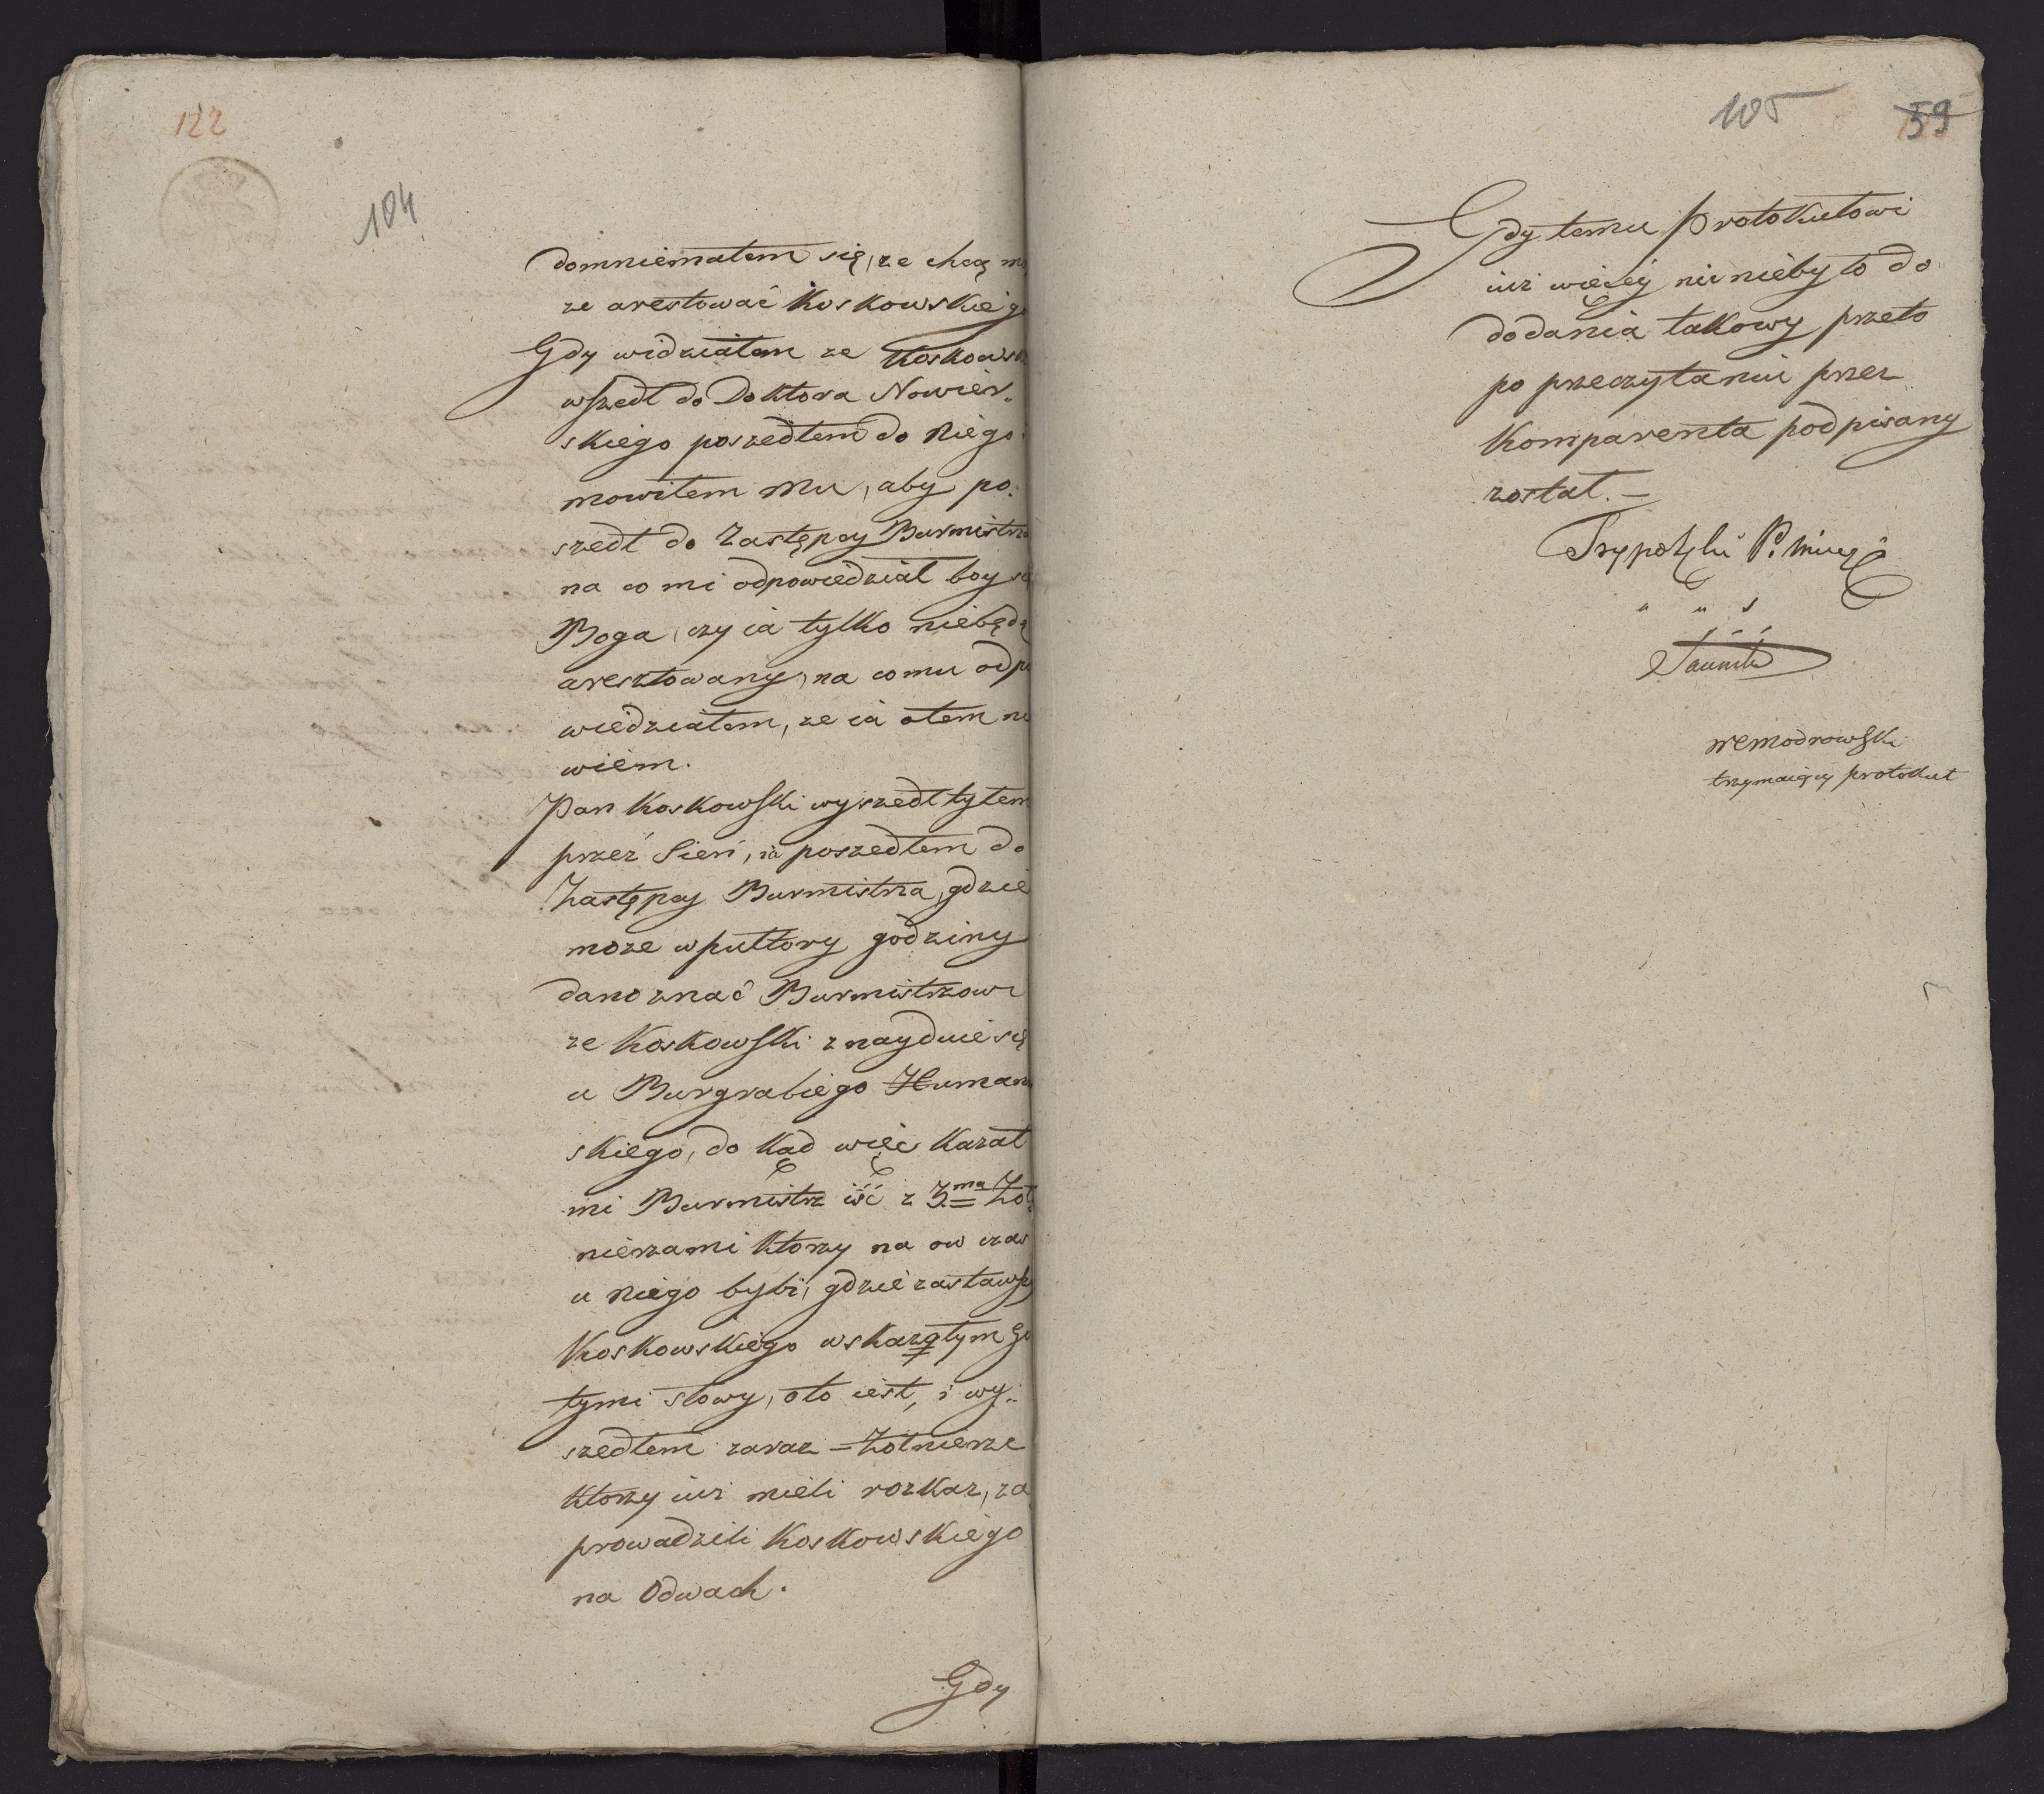 122
104
domniemałem się, że chcą mo
że arestować Koskowskiego
Gdy widziałem że Koskowsk
wszedł do Doktora Nowier„
skiego poszedłem do niego
mowiłem mu, aby po„
szedł do Zastępcy Burmistrza
na co mi odpowiedział boy się
Boga, czy ia tylko niebędę
aresztowany, na co mu odpo
wiedziałem, że ia otem nie
wiem.
Pan Koskowski wyszedł tyłem
przez Sień, ia poszedłem do
Zastępcy Burmistrza, gdzie
może wpułtory godziny
dano znać Burmistrzowi
że Koskowski znayduie się
u Burgrabiego Human
skiego, do kąd więc kazał
mi Burmistrz iść z 3ma Żoł
nierzami ktorzy na ow czas
u niego byli, gdzie zastawszy
Koskowskiego wskazałym go
tymi słowy, oto iest, i wy„
szedłem zaraz – Żołnierze
ktorzy iuż mieli rozkaz, za
prowadzili Koskowskiego
na Odwach.
Gdy
105 59
Gdy temu Protokułowi
iuż więcey nic niebyło do
dodania takowy przeto
po przeczytaniu przez
Komparenta podpisany
został. –
WModrowski
trzymaiący protokuł